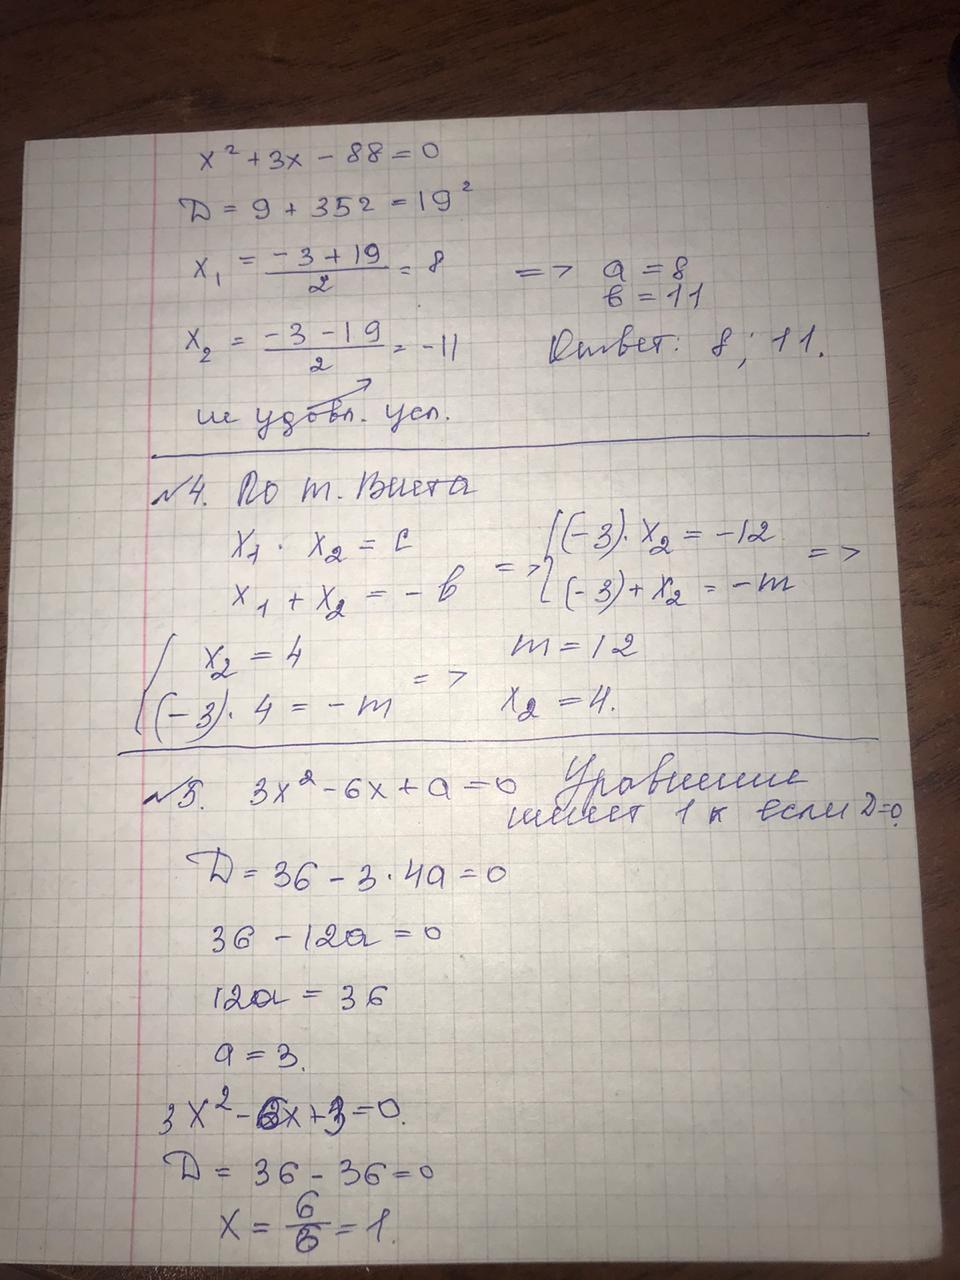 x² + 3x - 88 = 0
D = 9 + 352 = 19²
x₁ = (-3 + 19)/2 = 8 => a = 8
в = 11
x₂ = (-3 - 19)/2 = -11 Ответ: 8; 11.
не удовл. усл.
№4. По т. Виета
x₁ · x₂ = c => { (-3) · x₂ = -12 =>
x₁ + x₂ = -в (-3) + x₂ = -m
{ x₂ = 4 => m = 12
(-3) · 4 = -m x₂ = 4.
№5. 3x² - 6x + a = 0 Уравнение
имеет 1 к если D=0.
D = 36 - 3 · 4a = 0
36 - 12a = 0
12a = 36
a = 3.
3x² - 6x + 3 = 0.
D = 36 - 36 = 0
x = 6/6 = 1.